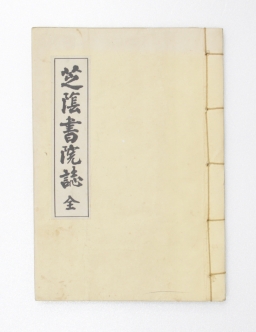 芝蔭書院誌 全